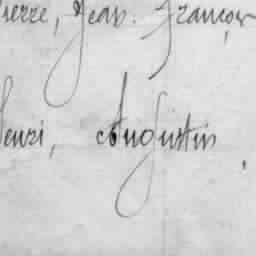 Pierre, Jean. François
Henri, Augustin,